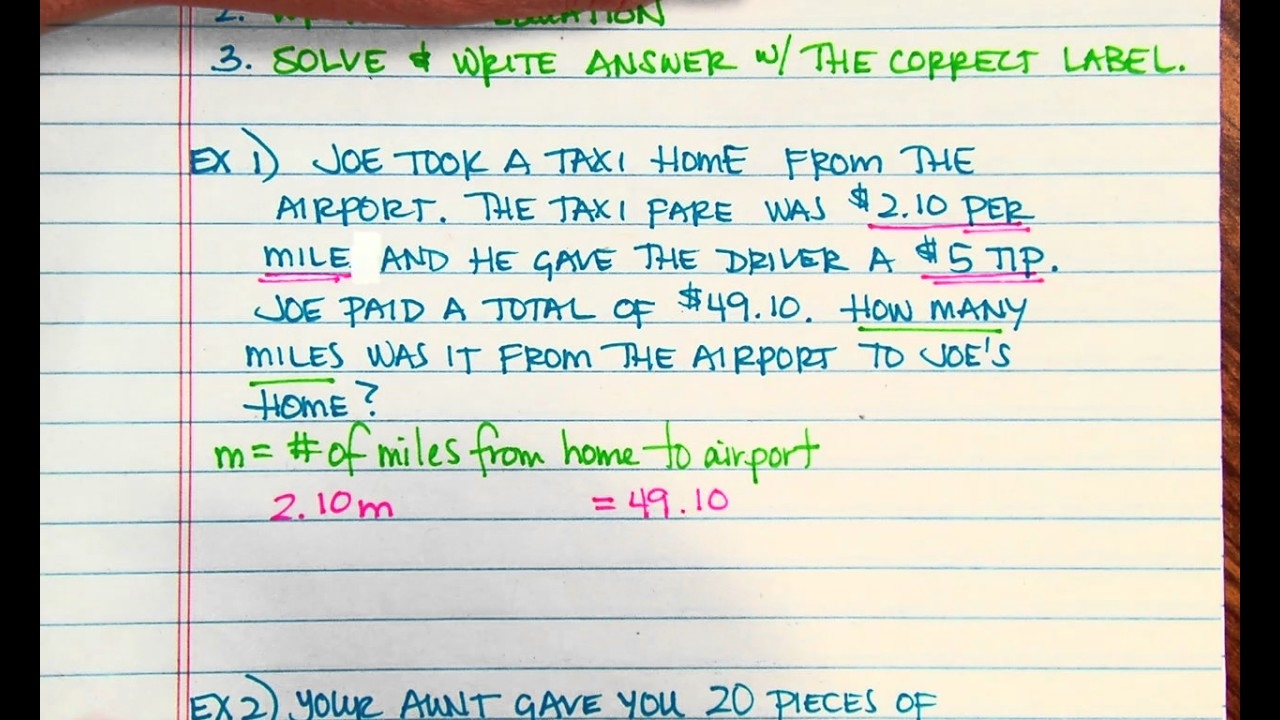 2. EQUATION
3. SOLVE & WRITE ANSWER W/ THE CORRECT LABEL.
EX 1) JOE TOOK A TAXI HOME FROM THE
AIRPORT. THE TAXI FARE WAS $2.10 PER
MILE AND HE GAVE THE DRIVER A $5 TIP.
JOE PAID A TOTAL OF $49.10. HOW MANY
MILES WAS IT FROM THE AIRPORT TO JOE'S
HOME?
m = # of miles from home to airport
2.10m = 49.10
EX 2) YOUR AUNT GAVE YOU 20 PIECES OF